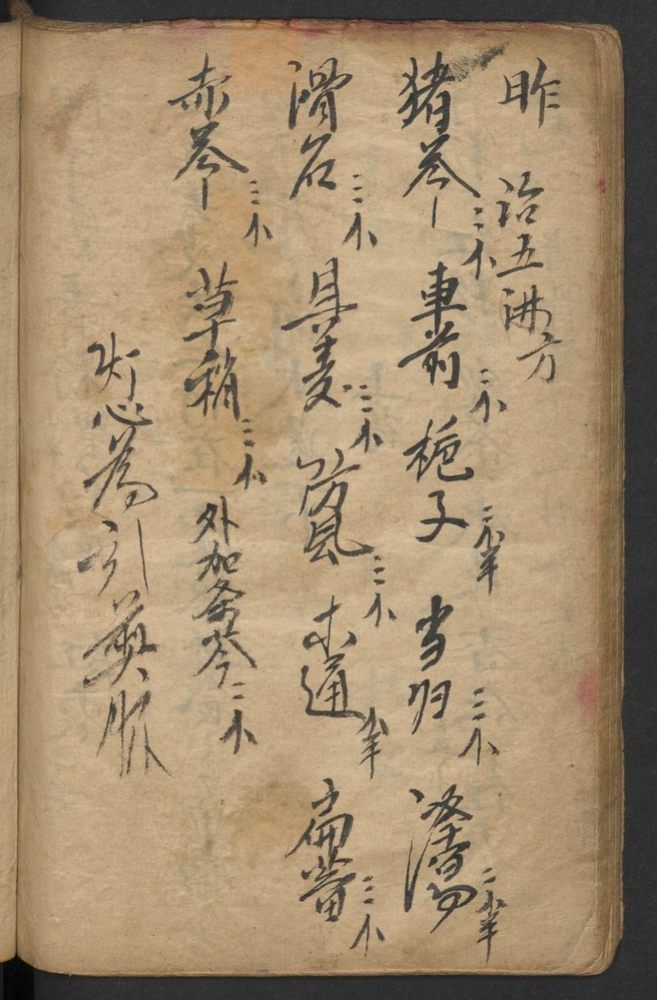 昨 治五淋方
猪苓二个 車前二个 梔子二个半 当归三个 二个半
滑石三个 具麦三个 木通个半 扁蓄三个
赤苓三个 草稍三个 外加条芩二个
灯心為引 煎服